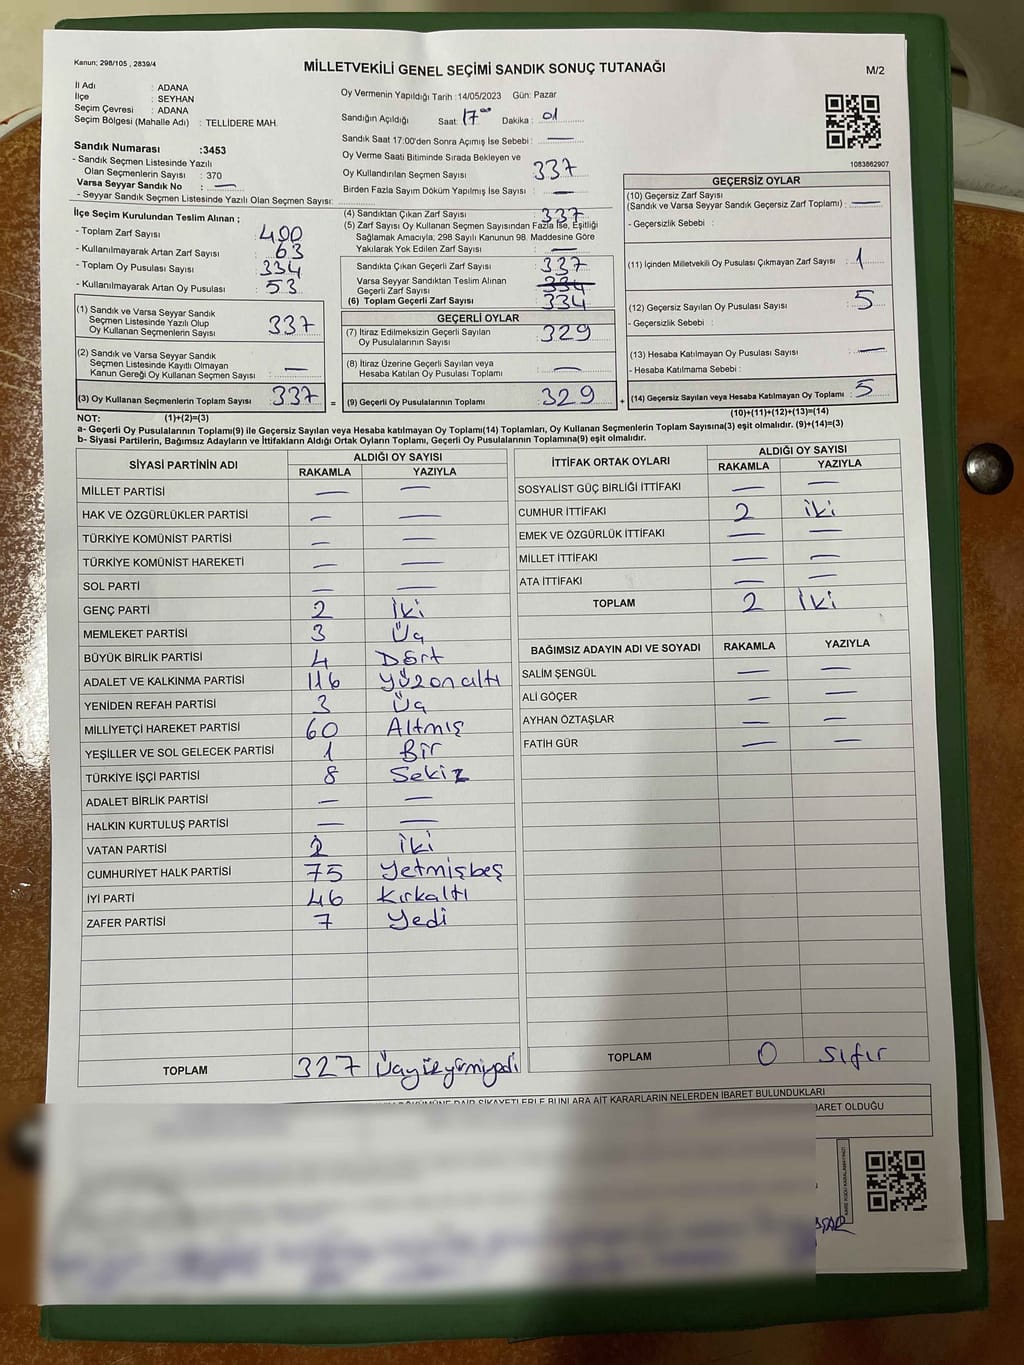 Kanun: 298/105 , 2839/4
MİLLETVEKİLİ GENEL SEÇİMİ SANDIK SONUÇ TUTANAĞI
M/2
İl Adı : ADANA
İlçe : SEYHAN
Seçim Çevresi : ADANA
Seçim Bölgesi (Mahalle Adı) : TELLİDERE MAH.
Oy Vermenin Yapıldığı Tarih :14/05/2023 Gün: Pazar
Sandığın Açıldığı Saat : 17 00 Dakika : 01
Sandık Saat 17:00'den Sonra Açımış İse Sebebi : —
Oy Verme Saati Bitiminde Sırada Bekleyen ve
Oy Kullandırılan Seçmen Sayısı 337
Birden Fazla Sayım Döküm Yapılmış İse Sayısı : —
1083862907
Sandık Numarası :3453
- Sandık Seçmen Listesinde Yazılı
Olan Seçmenlerin Sayısı : 370
Varsa Seyyar Sandık No : —
- Seyyar Sandık Seçmen Listesinde Yazılı Olan Seçmen Sayısı:
İlçe Seçim Kurulundan Teslim Alınan ;
- Toplam Zarf Sayısı : 400
- Kullanılmayarak Artan Zarf Sayısı : 63
- Toplam Oy Pusulası Sayısı : 334
- Kullanılmayarak Artan Oy Pusulası : 53
(1) Sandık ve Varsa Seyyar Sandık
Seçmen Listesinde Yazılı Olup
Oy Kullanan Seçmenlerin Sayısı : 337
(2) Sandık ve Varsa Seyyar Sandık
Seçmen Listesinde Kayıtlı Olmayan
Kanun Gereği Oy Kullanan Seçmen Sayısı : —
(3) Oy Kullanan Seçmenlerin Toplam Sayısı : 337 =
(4) Sandıktan Çıkan Zarf Sayısı : 337
(5) Zarf Sayısı Oy Kullanan Seçmen Sayısından Fazla İse, Eşitliği
Sağlamak Amacıyla, 298 Sayılı Kanunun 98. Maddesine Göre
Yakılarak Yok Edilen Zarf Sayısı : —
Sandıkta Çıkan Geçerli Zarf Sayısı : 337
Varsa Seyyar Sandıktan Teslim Alınan
Geçerli Zarf Sayısı : 334
(6) Toplam Geçerli Zarf Sayısı : 334
GEÇERLİ OYLAR
(7) İtiraz Edilmeksizin Geçerli Sayılan
Oy Pusulalarının Sayısı : 329
(8) İtiraz Üzerine Geçerli Sayılan veya
Hesaba Katılan Oy Pusulası Toplamı : —
(9) Geçerli Oy Pusulalarının Toplamı : 329 +
GEÇERSİZ OYLAR
(10) Geçersiz Zarf Sayısı
(Sandık ve Varsa Seyyar Sandık Geçersiz Zarf Toplamı) : —
- Geçersizlik Sebebi :
(11) İçinden Milletvekili Oy Pusulası Çıkmayan Zarf Sayısı : 1
(12) Geçersiz Sayılan Oy Pusulası Sayısı : 5
- Geçersizlik Sebebi :
(13) Hesaba Katılmayan Oy Pusulası Sayısı : —
- Hesaba Katılmama Sebebi :
(14) Geçersiz Sayılan veya Hesaba Katılmayan Oy Toplamı : 5
NOT: (1)+(2)=(3)
(10)+(11)+(12)+(13)=(14)
a- Geçerli Oy Pusulalarının Toplamı(9) ile Geçersiz Sayılan veya Hesaba katılmayan Oy Toplamı(14) Toplamları, Oy Kullanan Seçmenlerin Toplam Sayısına(3) eşit olmalıdır. (9)+(14)=(3)
b- Siyasi Partilerin, Bağımsız Adayların ve İttifakların Aldığı Ortak Oyların Toplamı, Geçerli Oy Pusulalarının Toplamına(9) eşit olmalıdır.
SİYASİ PARTİNİN ADI ALDIĞI OY SAYISI
RAKAMLA YAZIYLA
MİLLET PARTİSİ — —
HAK VE ÖZGÜRLÜKLER PARTİSİ — —
TÜRKİYE KOMÜNİST PARTİSİ — —
TÜRKİYE KOMÜNİST HAREKETİ — —
SOL PARTİ — —
GENÇ PARTİ 2 İki
MEMLEKET PARTİSİ 3 Üç
BÜYÜK BİRLİK PARTİSİ 4 Dört
ADALET VE KALKINMA PARTİSİ 116 Yüzonaltı
YENİDEN REFAH PARTİSİ 3 Üç
MİLLİYETÇİ HAREKET PARTİSİ 60 Altmış
YEŞİLLER VE SOL GELECEK PARTİSİ 1 Bir
TÜRKİYE İŞÇİ PARTİSİ 8 Sekiz
ADALET BİRLİK PARTİSİ — —
HALKIN KURTULUŞ PARTİSİ — —
VATAN PARTİSİ 2 İki
CUMHURİYET HALK PARTİSİ 75 Yetmişbeş
İYİ PARTİ 46 Kırkaltı
ZAFER PARTİSİ 7 Yedi
TOPLAM 327 Üçyüzyirmiyedi
İTTİFAK ORTAK OYLARI ALDIĞI OY SAYISI
RAKAMLA YAZIYLA
SOSYALİST GÜÇ BİRLİĞİ İTTİFAKI — —
CUMHUR İTTİFAKI 2 iki
EMEK VE ÖZGÜRLÜK İTTİFAKI — —
MİLLET İTTİFAKI — —
ATA İTTİFAKI — —
TOPLAM 2 İki
BAĞIMSIZ ADAYIN ADI VE SOYADI RAKAMLA YAZIYLA
SALİM ŞENGÜL — —
ALİ GÖÇER — —
AYHAN ÖZTAŞLAR — —
FATİH GÜR — —
TOPLAM 0 sıfır
DAİR ŞİKAYETLERLE BUNLARA AİT KARARLARIN NELERDEN İBARET BULUNDUKLARI
BARET OLDUĞU